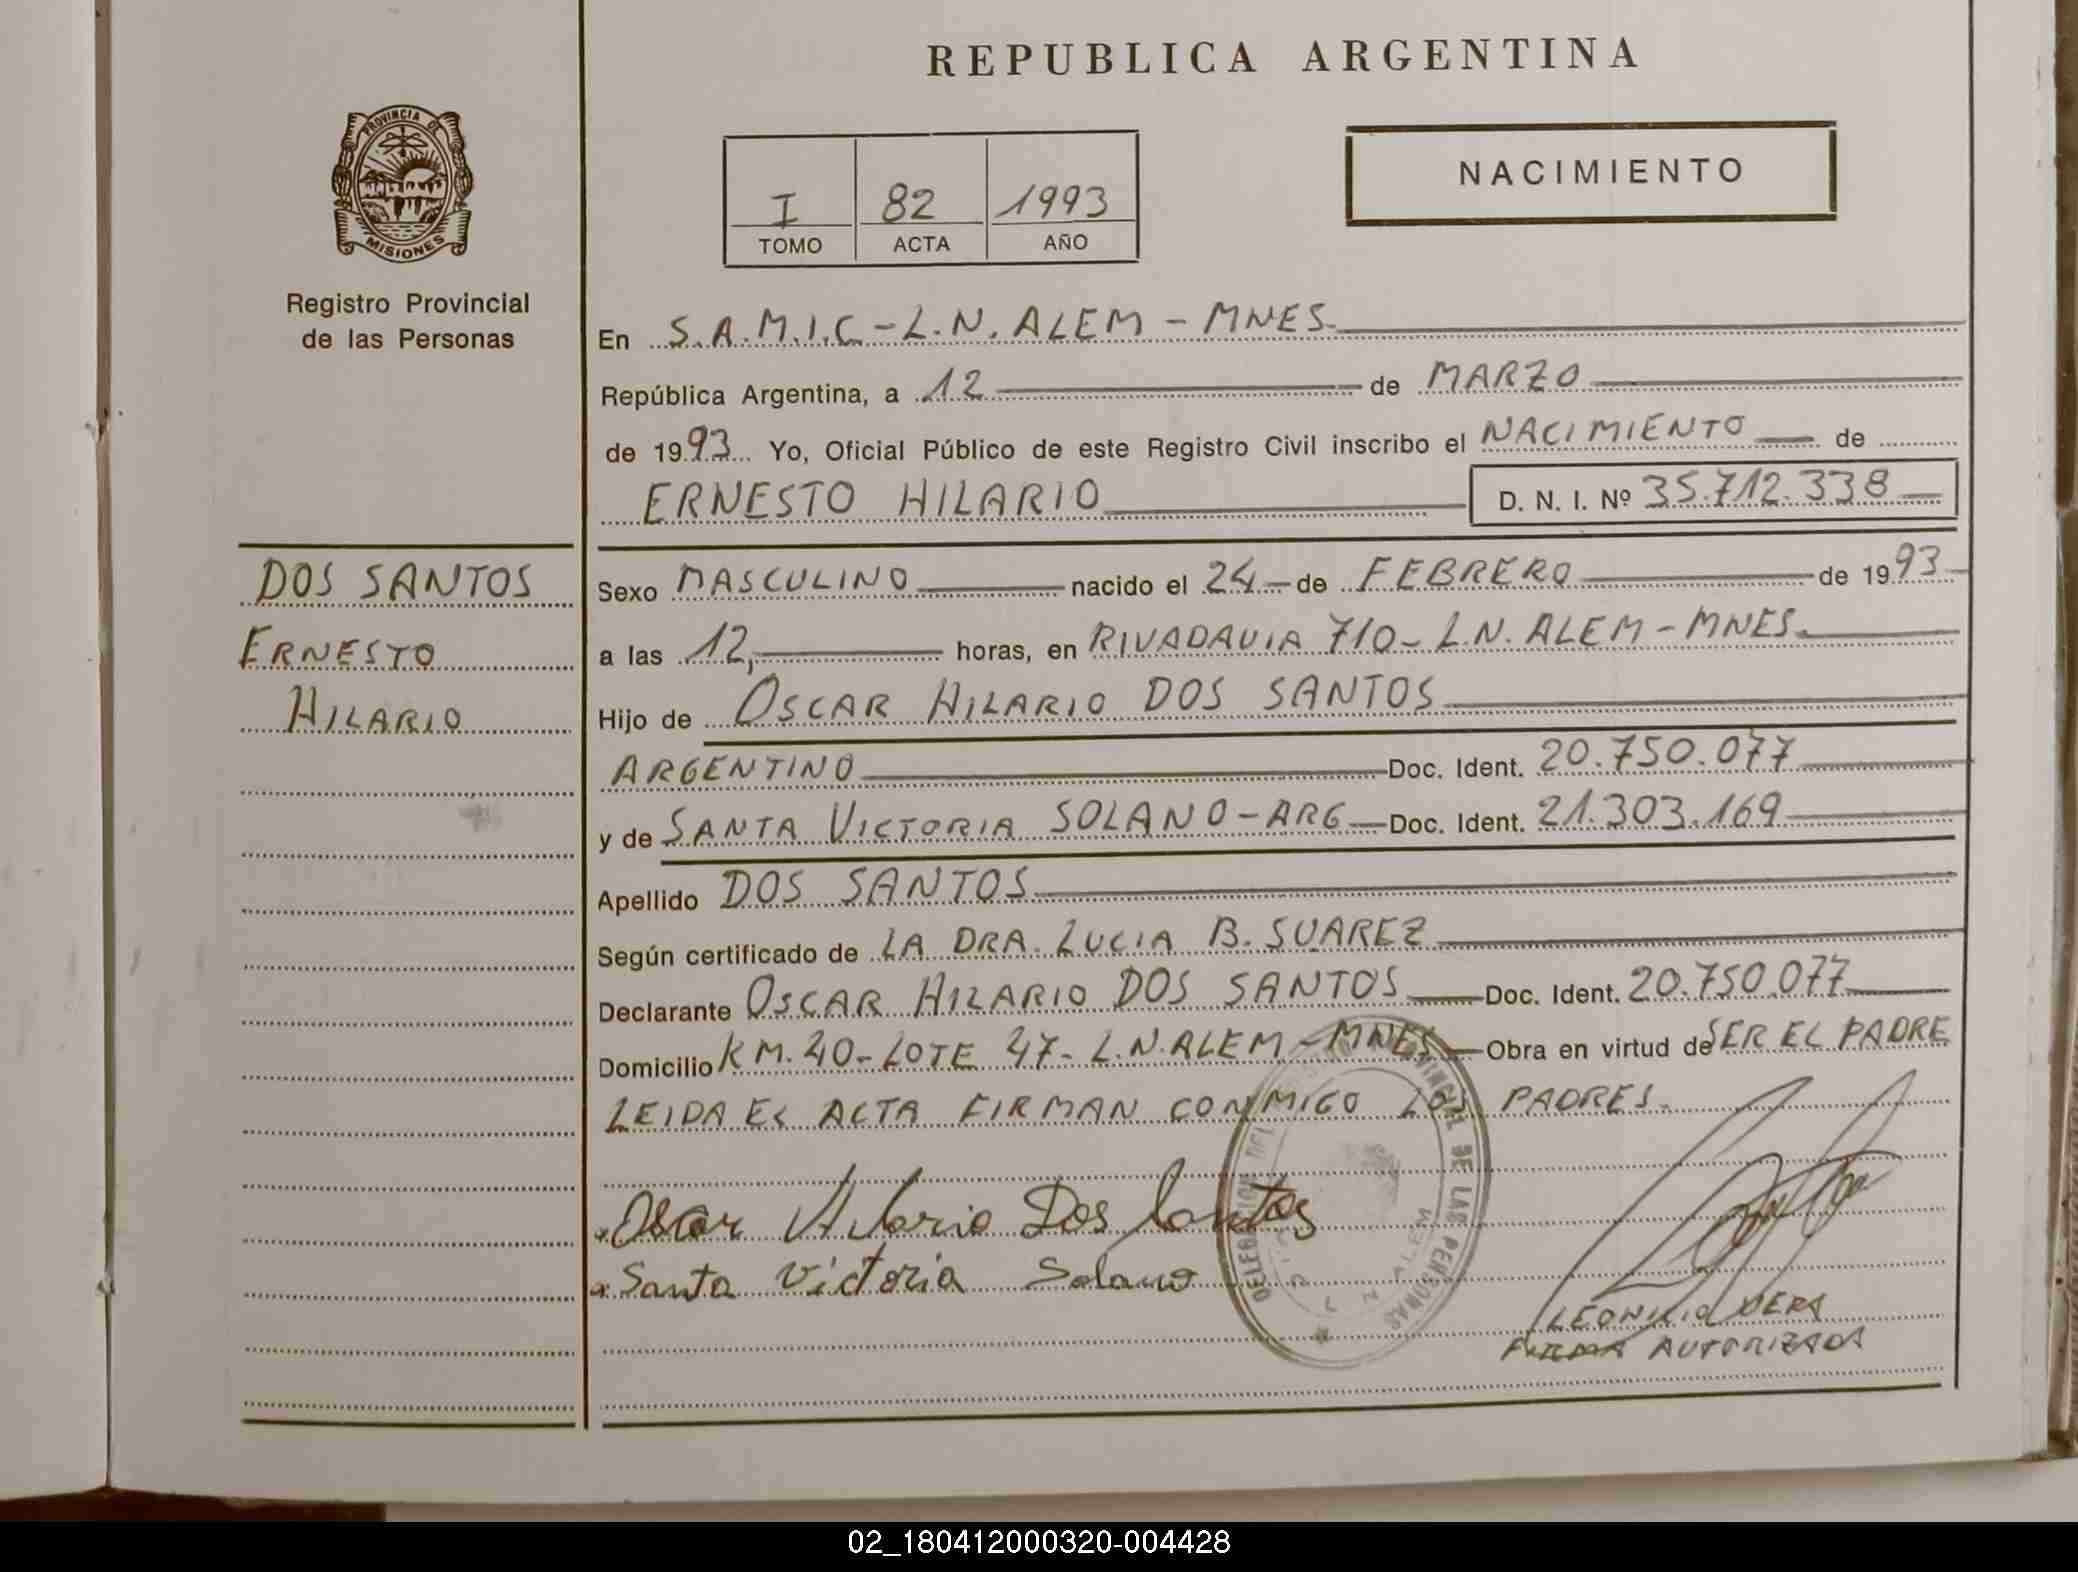 REPUBLICA ARGENTINA
PROVINCIA DE
MISIONES
Registro Provincial
de las Personas
I 82 1993
TOMO ACTA AÑO
NACIMIENTO
En S.A.M.I.C - L.N. ALEM - MNES.
República Argentina, a 12 de MARZO
de 1993 Yo, Oficial Público de este Registro Civil inscribo el NACIMIENTO de
ERNESTO HILARIO D. N. I. Nº 35.712.338
DOS SANTOS
ERNESTO
HILARIO
Sexo MASCULINO nacido el 24 de FEBRERO de 1993
a las 12, horas, en RIVADAVIA 710 - L.N. ALEM - MNES.
Hijo de OSCAR HILARIO DOS SANTOS
ARGENTINO Doc. Ident. 20.750.077
y de SANTA VICTORIA SOLANO - ARG Doc. Ident. 21.303.169
Apellido DOS SANTOS
Según certificado de LA DRA. LUCIA B. SUAREZ
Declarante OSCAR HILARIO DOS SANTOS Doc. Ident. 20.750.077
Domicilio KM. 40 - LOTE 47 - L.N. ALEM - MNES Obra en virtud de SER EL PADRE
LEIDA EL ACTA FIRMAN CONMIGO LOS PADRES.
Oscar Hilario Dos Santos
Santa Victoria Solano
DELEGACION DEL PROVINCIAL DE LAS PERSONAS
N. ALEM
LEONILIO VERA
FIRMA AUTORIZADA
02_180412000320-004428